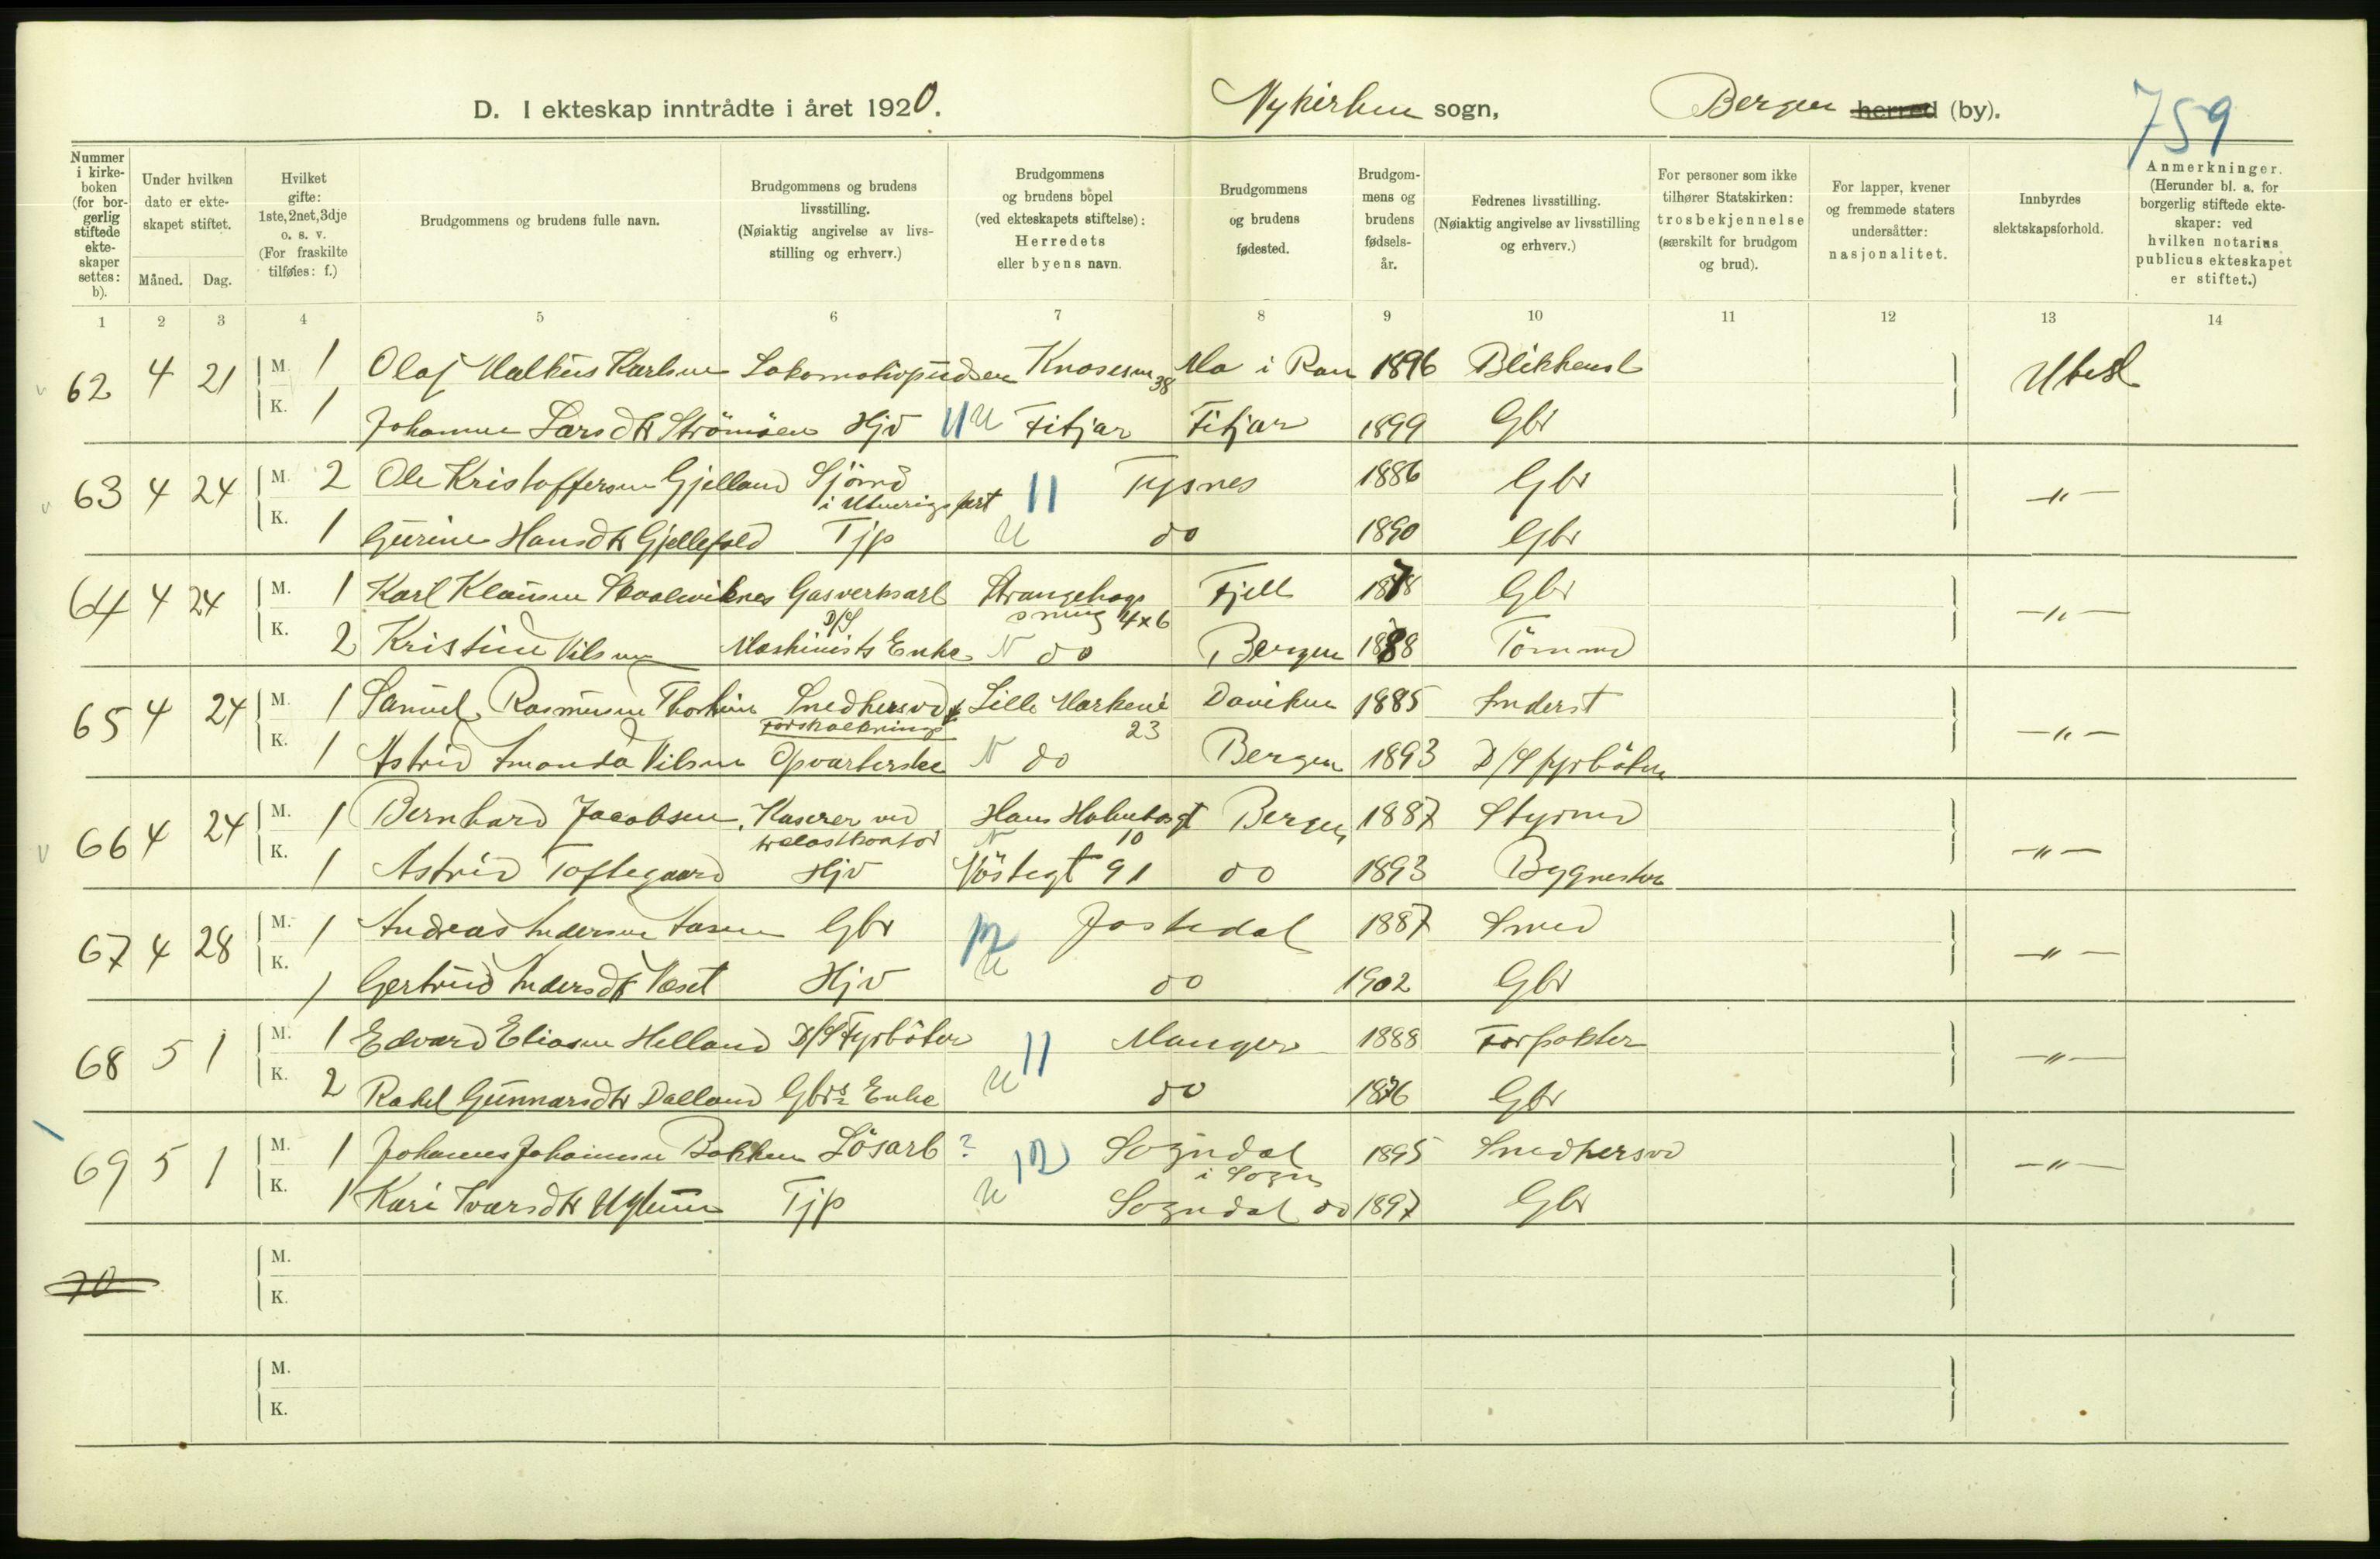 759
D. I ekteskap inntrådte i året 1920. Nykirken sogn, Bergen herred (by).
Nummer i kirkeboken (for borgerlig stiftede ekteskaper settes: b).
Under hvilken dato er ekteskapet stiftet.
Måned. Dag.
Hvilket gifte: 1ste, 2net, 3dje o. s. v. (For fraskilte tilføies: f.)
Brudgommens og brudens fulle navn.
Brudgommens og brudens livsstilling. (Nøiaktig angivelse av livsstilling og erhverv.)
Brudgommens og brudens bopel (ved ekteskapets stiftelse): Herredets eller byens navn.
Brudgommens og brudens fødested.
Brudgommens og brudens fødselsår.
Fedrenes livsstilling. (Nøiaktig angivelse av livsstilling og erhverv.)
For personer som ikke tilhører Statskirken: trosbekjennelse (særskilt for brudgom og brud).
For lapper, kvener og fremmede staters undersåtter: nasjonalitet.
Innbyrdes slektskapsforhold.
Anmerkninger. (Herunder bl. a. for borgerlig stiftede ekteskaper: ved hvilken notarius publicus ekteskapet er stiftet.)
1 2 3 4 5 6 7 8 9 10 11 12 13 14
62 4 21 M. 1 Olaf Karlsen 38 Mo i Ran 1896 Ubesl
K. 1 Johanne Larsdtr Strömöen Hjv 11 U Fitjar Fitjar 1899 Gbr
63 4 24 M. 2 Ole Kristoffersen Gjelland Sjömd i Utenrigsfart 11 Tysnes 1886 Gbr -"-
K. 1 Gurine Hansdtr Gjellefald Tjp U do 1890 Gbr
64 4 24 M. 1 Karl Klausen Gasverksarb 4x6 Fjell 1878 Gbr -"-
K. 2 Kristine Nilsen D/S Maskinists Enke N do Bergen 1888 Tömmd
65 4 24 M. 1 Samuel Rasmusen Snedkersvd Lille Markevei 23 Daviken 1885 Inderst -"-
Forskalkning
K. 1 Astrid Amanda Nilsen Opvarterske N do Bergen 1893 D/S fyrböter
66 4 24 M. 1 Bernhard Jacobsen Kaserer ved Hans Holmboegt 10 Bergen 1887 Styrmd -"-
K. 1 Astrid Toftegaard Hjv N 91 do 1893 Bygmester
67 4 28 M. 1 Andreas Andersen Aasen Gbr 12 Jostedal 1887 Smed -"-
K. 1 Gertrud Andersdtr Hjv U do 1902 Gbr
68 5 1 M. 1 Edvard Eliasen Helland D/S Fyrböter 11 Manger 1888 Forpakter -"-
K. 2 Rakel Gunnarsdtr Dalland Gbrs Enke U do 1876 Gbr
69 5 1 M. 1 Johannes Johannesen Bakken Lösarb ? 12 Sogndal i Sogn 1895 Snedkersvd -"-
K. 1 Kari Ivarsdtr Uglum Tjp U Sogndal do 1897 Gbr
70 M.
K.
M.
K.